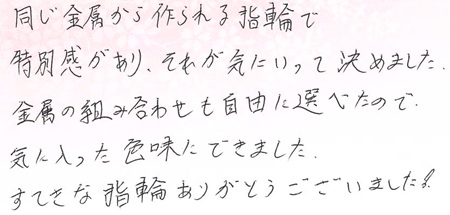 同じ金属から作られる指輪で
特別感があり、それが気にいって決めました.
金属の組み合わせも自由に選べたので.
気に入った色味にできました.
すてきな指輪ありがとうございました!